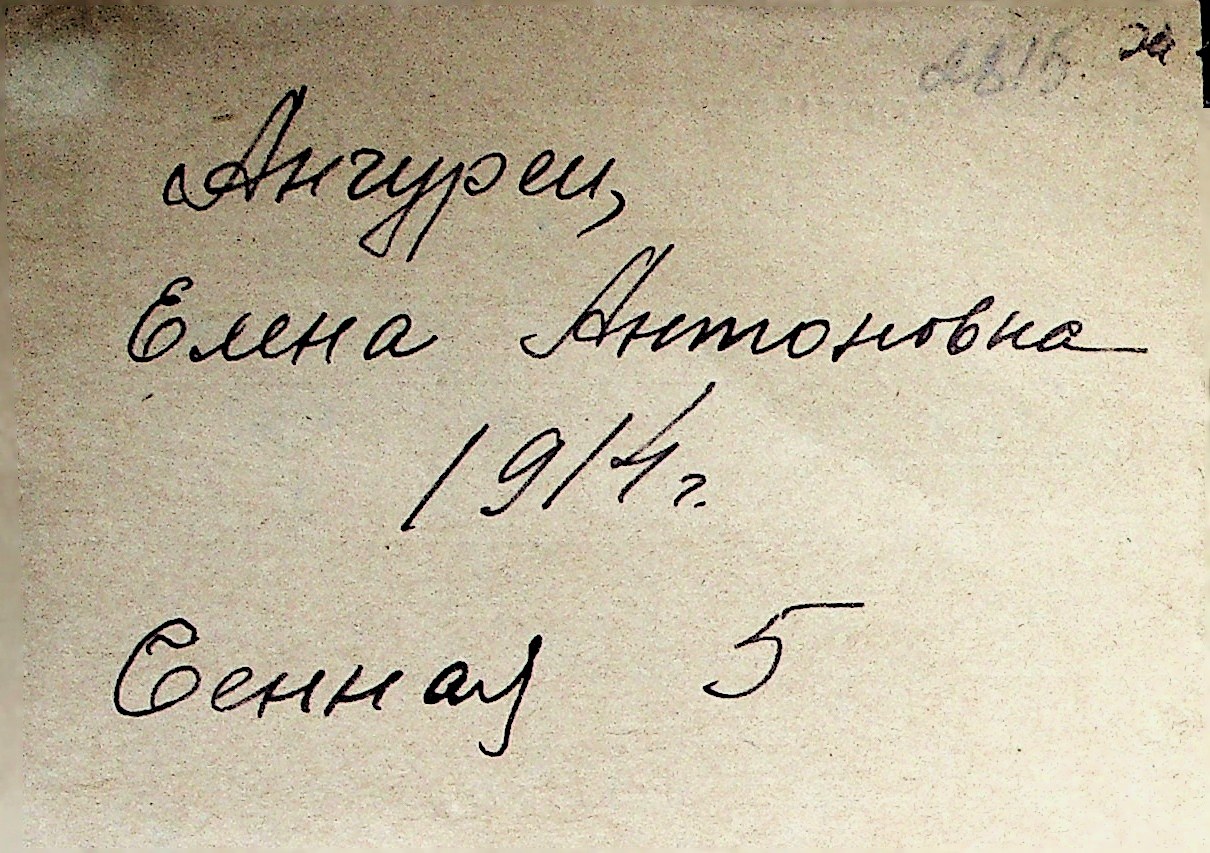 Ангурец,
Елена Антоновна
1914 г.
Сенная 5